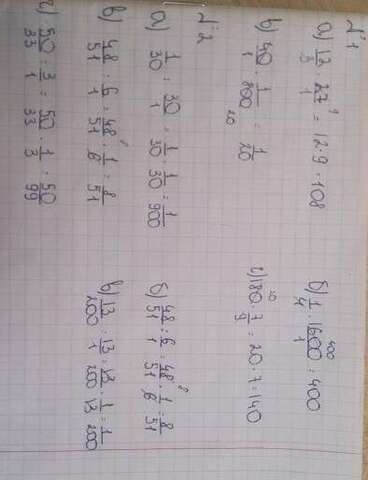 №1
а) 12/3 · 27/1 ⁹ = 12·9 · 108
б) 1/4 · 1600/1 ⁴⁰⁰ = 400
в) 40/1 · 1/800 ₂₀ = 1/20
г) 180 ²⁰ · 7/9 = 20·7=140
№2
а) 1/30 : 30/1 = 1/30 · 1/30 = 1/900
б) 48/51 : 6/1 = 48/51 ⁸ · 1/6 = 8/51
в) 48/51 : 6/1 = 48/51 ⁸ · 1/6 = 8/51
в) 13/200 : 13/1 = 13/200 · 1/13 = 1/200
г) 50/33 : 3/1 = 50/33 · 1/3 = 50/99